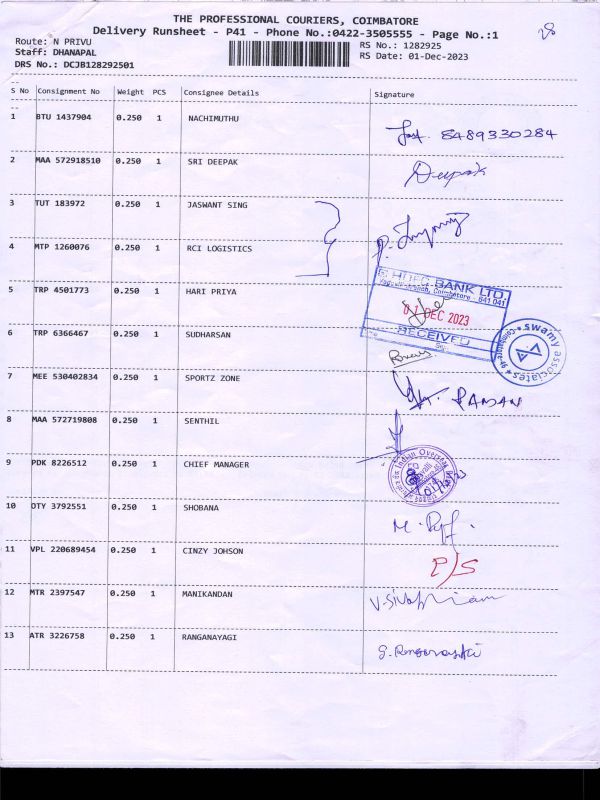 THE PROFESSIONAL COURIERS, COIMBATORE
Delivery Runsheet - P41 - Phone No.:0422-3505555 - Page No.:1
Route: N PRIVU
Staff: DHANAPAL
DRS No.: DCJB128292501
RS No.: 1282925
RS Date: 01-Dec-2023
28
S No Consignment No Weight PCS Consignee Details Signature
1 BTU 1437904 0.250 1 NACHIMUTHU 8489330284
2 MAA 572918510 0.250 1 SRI DEEPAK Deepak
3 TUT 183972 0.250 1 JASWANT SING
4 MTP 1260076 0.250 1 RCI LOGISTICS
5 TRP 4501773 0.250 1 HARI PRIYA
HDFC BANK LTD.
Coimbatore - 641 041
01 DEC 2023
RECEIVED
6 TRP 6366467 0.250 1 SUDHARSAN
swamy associates
7 MEE 530402834 0.250 1 SPORTZ ZONE
8 MAA 572719808 0.250 1 SENTHIL
9 PDK 8226512 0.250 1 CHIEF MANAGER
Indian Overseas
10 OTY 3792551 0.250 1 SHOBANA
11 VPL 220689454 0.250 1 CINZY JOHSON P/S
12 MTR 2397547 0.250 1 MANIKANDAN
13 ATR 3226758 0.250 1 RANGANAYAGI